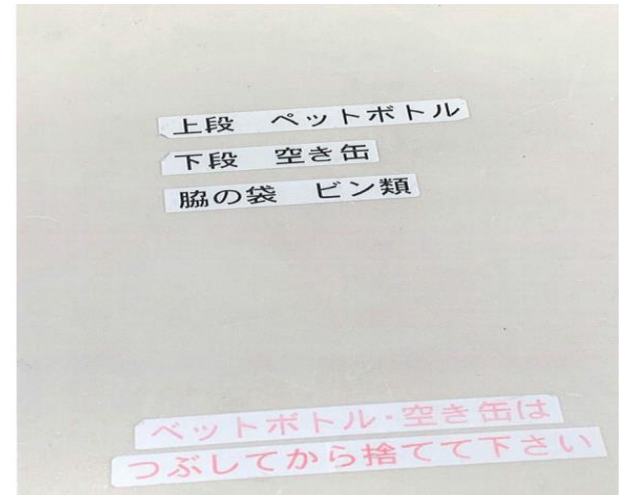 上段　ペットボトル
下段　空き缶
脇の袋　ビン類
ペットボトル・空き缶は
つぶしてから捨てて下さい